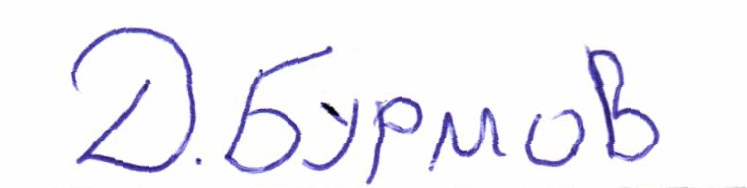 Д. Бурмов